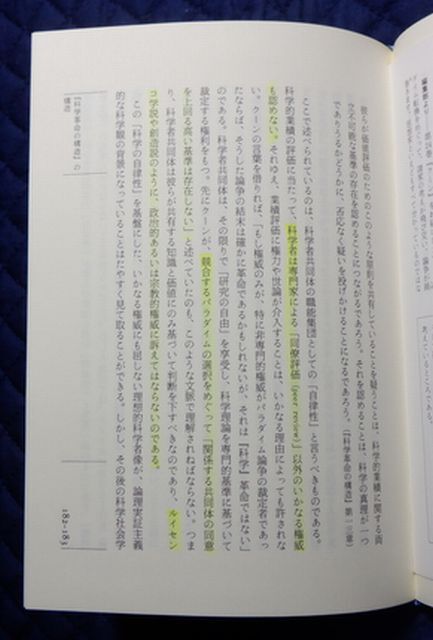 彼らが価値評価のためのこのような原則を共有していることを疑うことは、科学的業績に関する両
立不可能な基準の存在を認めることにつながるであろう。それを認めることは、科学の真理が一つ
でありうるかどうかに、否応なく疑いを投げかけることになるであろう。(『科学革命の構造』第一三章)
ここで述べられているのは、科学者共同体の職能集団としての「自律性」と言うべきものである。
科学的業績の評価に当たって、科学者は専門家による「同僚評価(peer review)」以外のいかなる権威
も認めない。それゆえ、業績評価に権力や世論が介入することは、いかなる理由によっても許されな
い。クーンの言葉を借りれば、「もし権威のみが、特に非専門的権威がパラダイム論争の裁定者であっ
たならば、そうした論争の結末は確かに革命であるかもしれないが、それは『科学』革命ではない」
のである。科学者共同体は、その限りで「研究の自由」を享受し、科学理論を専門的基準に基づいて
裁定する権利をもつ。先にクーンが、競合するパラダイムの選択をめぐって「関係する共同体の同意
を上回る高い基準は存在しない」と述べていたのも、このような文脈で理解されねばならない。つま
り、科学者共同体は彼らが共有する知識と価値にのみ基づいて判断を下すべきなのであり、ルイセン
コ学説や創造説のように、政治的あるいは宗教的権威に訴えてはならないのである。
この「科学の自律性」を基盤にした、いかなる権威にも屈しない理想的科学者像が、論理実証主義
的な科学観の背景になっていることはたやすく見て取ることができる。しかし、その後の科学社会学
『科学革命の構造』の
構造
182-183